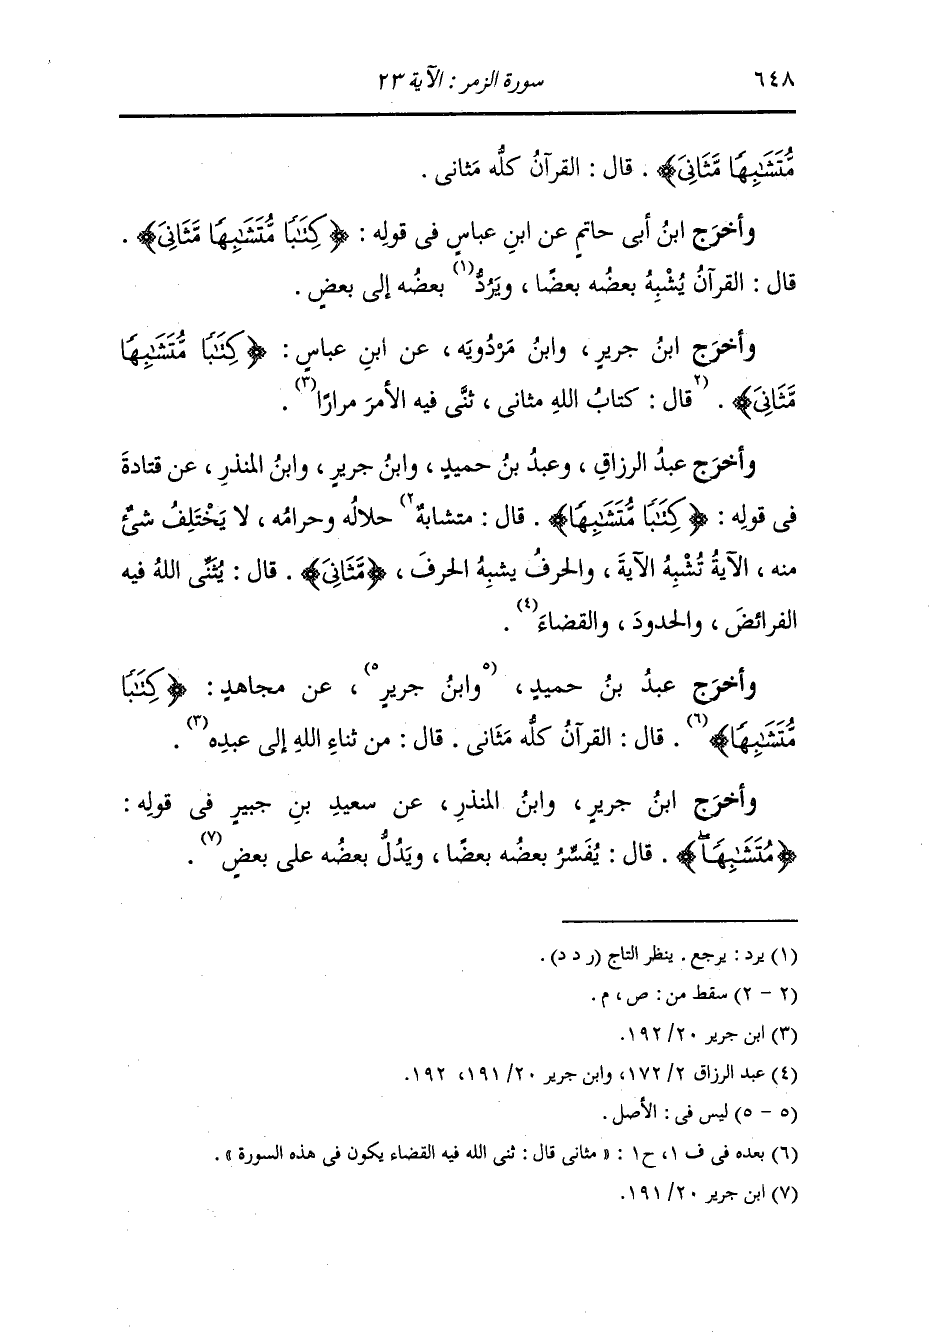 ٦٤٨ سورة الزمر : الآية ٢٣
مُّتَشَٰبِهًا مَّثَانِىَ﴾ . قال : القرآنُ كلُّه مَثانى .
وأخرَج ابنُ أبى حاتمٍ عن ابنِ عباسٍ فى قولِه : ﴿كِتَٰبًا مُّتَشَٰبِهًا مَّثَانِىَ﴾ .
قال : القرآنُ يُشْبِهُ بعضُه بعضًا ، ويَرُدُّ(١) بعضُه إلى بعضٍ .
وأخرَج ابنُ جريرٍ ، وابنُ مَرْدُويَه ، عن ابنِ عباسٍ : ﴿كِتَٰبًا مُّتَشَٰبِهًا
مَّثَانِىَ﴾ . (٢قال : كتابُ اللهِ مثانى ، ثنَّى فيه الأمرَ مرارًا(٣) .
وأخرَج عبدُ الرزاقِ ، وعبدُ بنُ حميدٍ ، وابنُ جريرٍ ، وابنُ المنذرِ ، عن قتادةَ
فى قولِه : ﴿كِتَٰبًا مُّتَشَٰبِهًا﴾ . قال : متشابهٌ٢) حلالُه وحرامُه ، لا يَخْتَلِفُ شىءٌ
منه ، الآيةُ تُشْبِهُ الآيةَ ، والحرفُ يشبِهُ الحرفَ ، ﴿مَّثَانِىَ﴾ . قال : يُثَنِّى اللهُ فيه
الفرائضَ ، والحدودَ ، والقضاءَ(٤) .
وأخرَج عبدُ بنُ حميدٍ ، (٥وابنُ جريرٍ٥) ، عن مجاهدٍ : ﴿كِتَٰبًا
مُّتَشَٰبِهًا﴾(٦) . قال : القرآنُ كلُّه مَثانى . قال : من ثناءِ اللهِ إلى عبدِه(٣) .
وأخرَج ابنُ جريرٍ ، وابنُ المنذرِ ، عن سعيدِ بنِ جبيرٍ فى قولِه :
﴿مُتَشَٰبِهًا﴾ . قال : يُفَسِّرُ بعضُه بعضًا ، ويَدُلُّ بعضُه على بعضٍ(٧) .
(١) يرد : يرجع . ينظر التاج (ر د د) .
(٢ - ٢) سقط من : ص ، م .
(٣) ابن جرير ٢٠/ ١٩٢.
(٤) عبد الرزاق ٢/ ١٧٢، وابن جرير ٢٠/ ١٩١، ١٩٢.
(٥ - ٥) ليس فى : الأصل .
(٦) بعده فى ف ١، ح ١ : « مثانى قال : ثنى الله فيه القضاء يكون فى هذه السورة » .
(٧) ابن جرير ٢٠/ ١٩١.